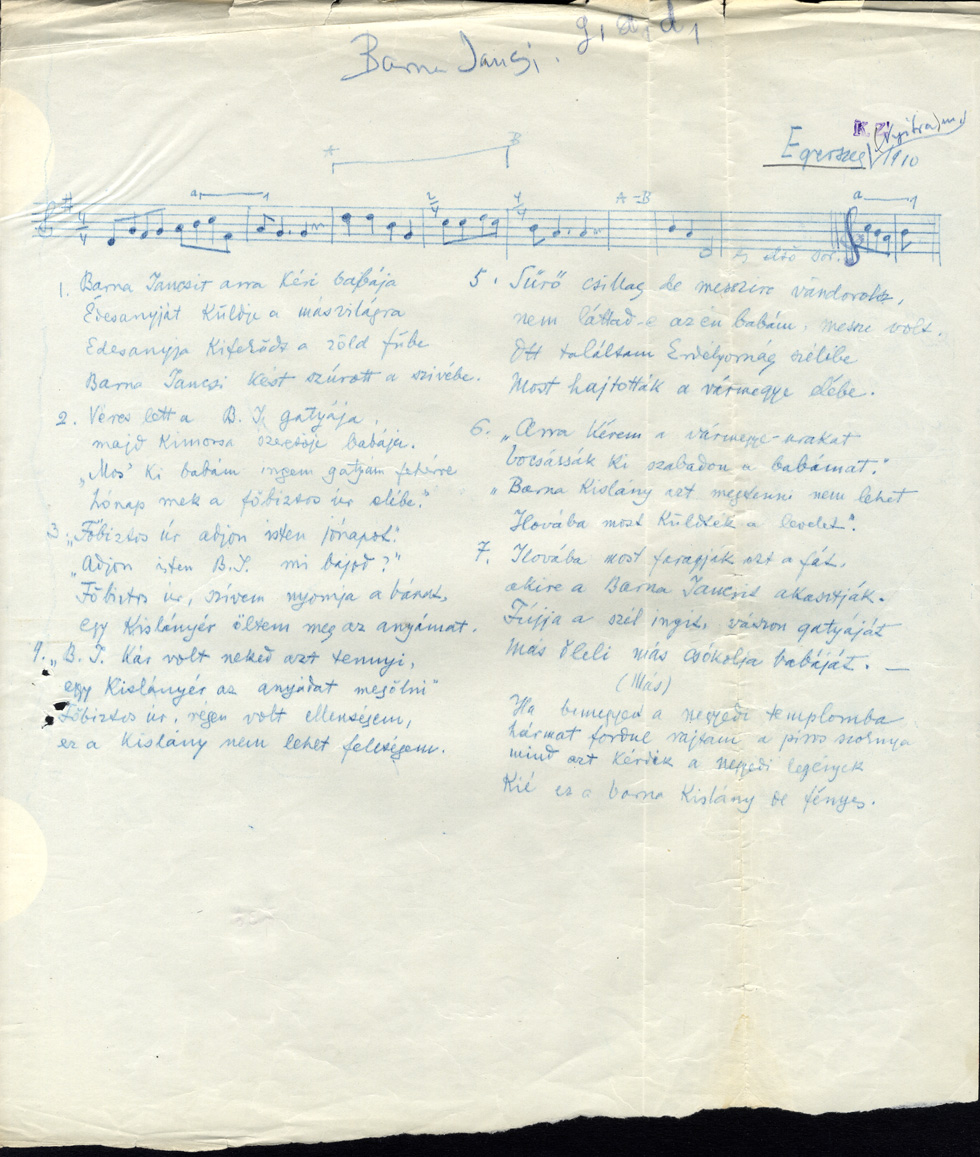 Barna Jancsi.
K.
Egerszeg (Nyitra) m
1910
A B
a
2/4 4/4 A = B a
4/4
az első sor.
1. Barna Jancsit arra kéri babája
Édesanyját küldje a másvilágra
Édesanyja kifeküdt a zöld fűbe
Barna Jancsi kést szúrott a szivébe.
2. Véres lett a B. J. gatyája,
majd kimossa szeretője babája.
„Mos' ki babám ingem gatyám fehérre
hónap mek a főbiztos úr elébe."
3. „Főbiztos úr adjon isten jónapot."
„Adjon isten B. J. mi bajod?"
Főbiztos úr, szívem nyomja a bánat,
egy kislányér öltem meg az anyámat.
4. „B. J. Kár volt neked azt tennyi,
egy kislányér az anyádat megölni"
Főbiztos úr, régen volt ellenségem,
ez a kislány nem lehet feleségem.
5. Sűrő csillag de messzire vándorolsz,
nem láttad-e az én babám, messze volt.
Ott találtam Erdélyország szélibe
Most hajtották a vármegye elébe.
6. „Arra kérem a vármegye-urakat
bocsássák ki szabadon a babámat."
„Barna kislány azt megtenni nem lehet
Ilovába most küldték a levelet".
7. Ilovába most faragják azt a fát,
akire a Barna Jancsit akasztják.
Fújja a szél ingit, vászon gatyáját
más öleli más csókolja babáját. —
(Más)
Ha bemegyek a negyedi templomba
hármat fordul rajtam a piros szoknya
mind azt kérdik a negyedi legények
Kié ez a barna kislány de fényes.